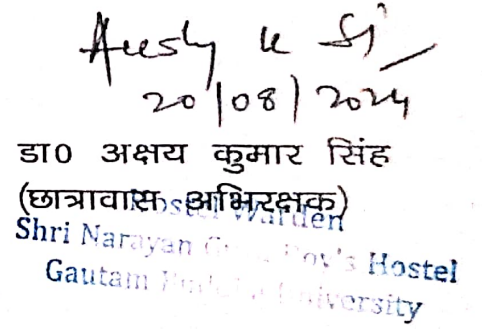 20/08/2024
डा0 अक्षय कुमार सिंह
(छात्रावास अभिरक्षक)
Hostel Warden
Shri Narayan Boy's Hostel
Gautam University